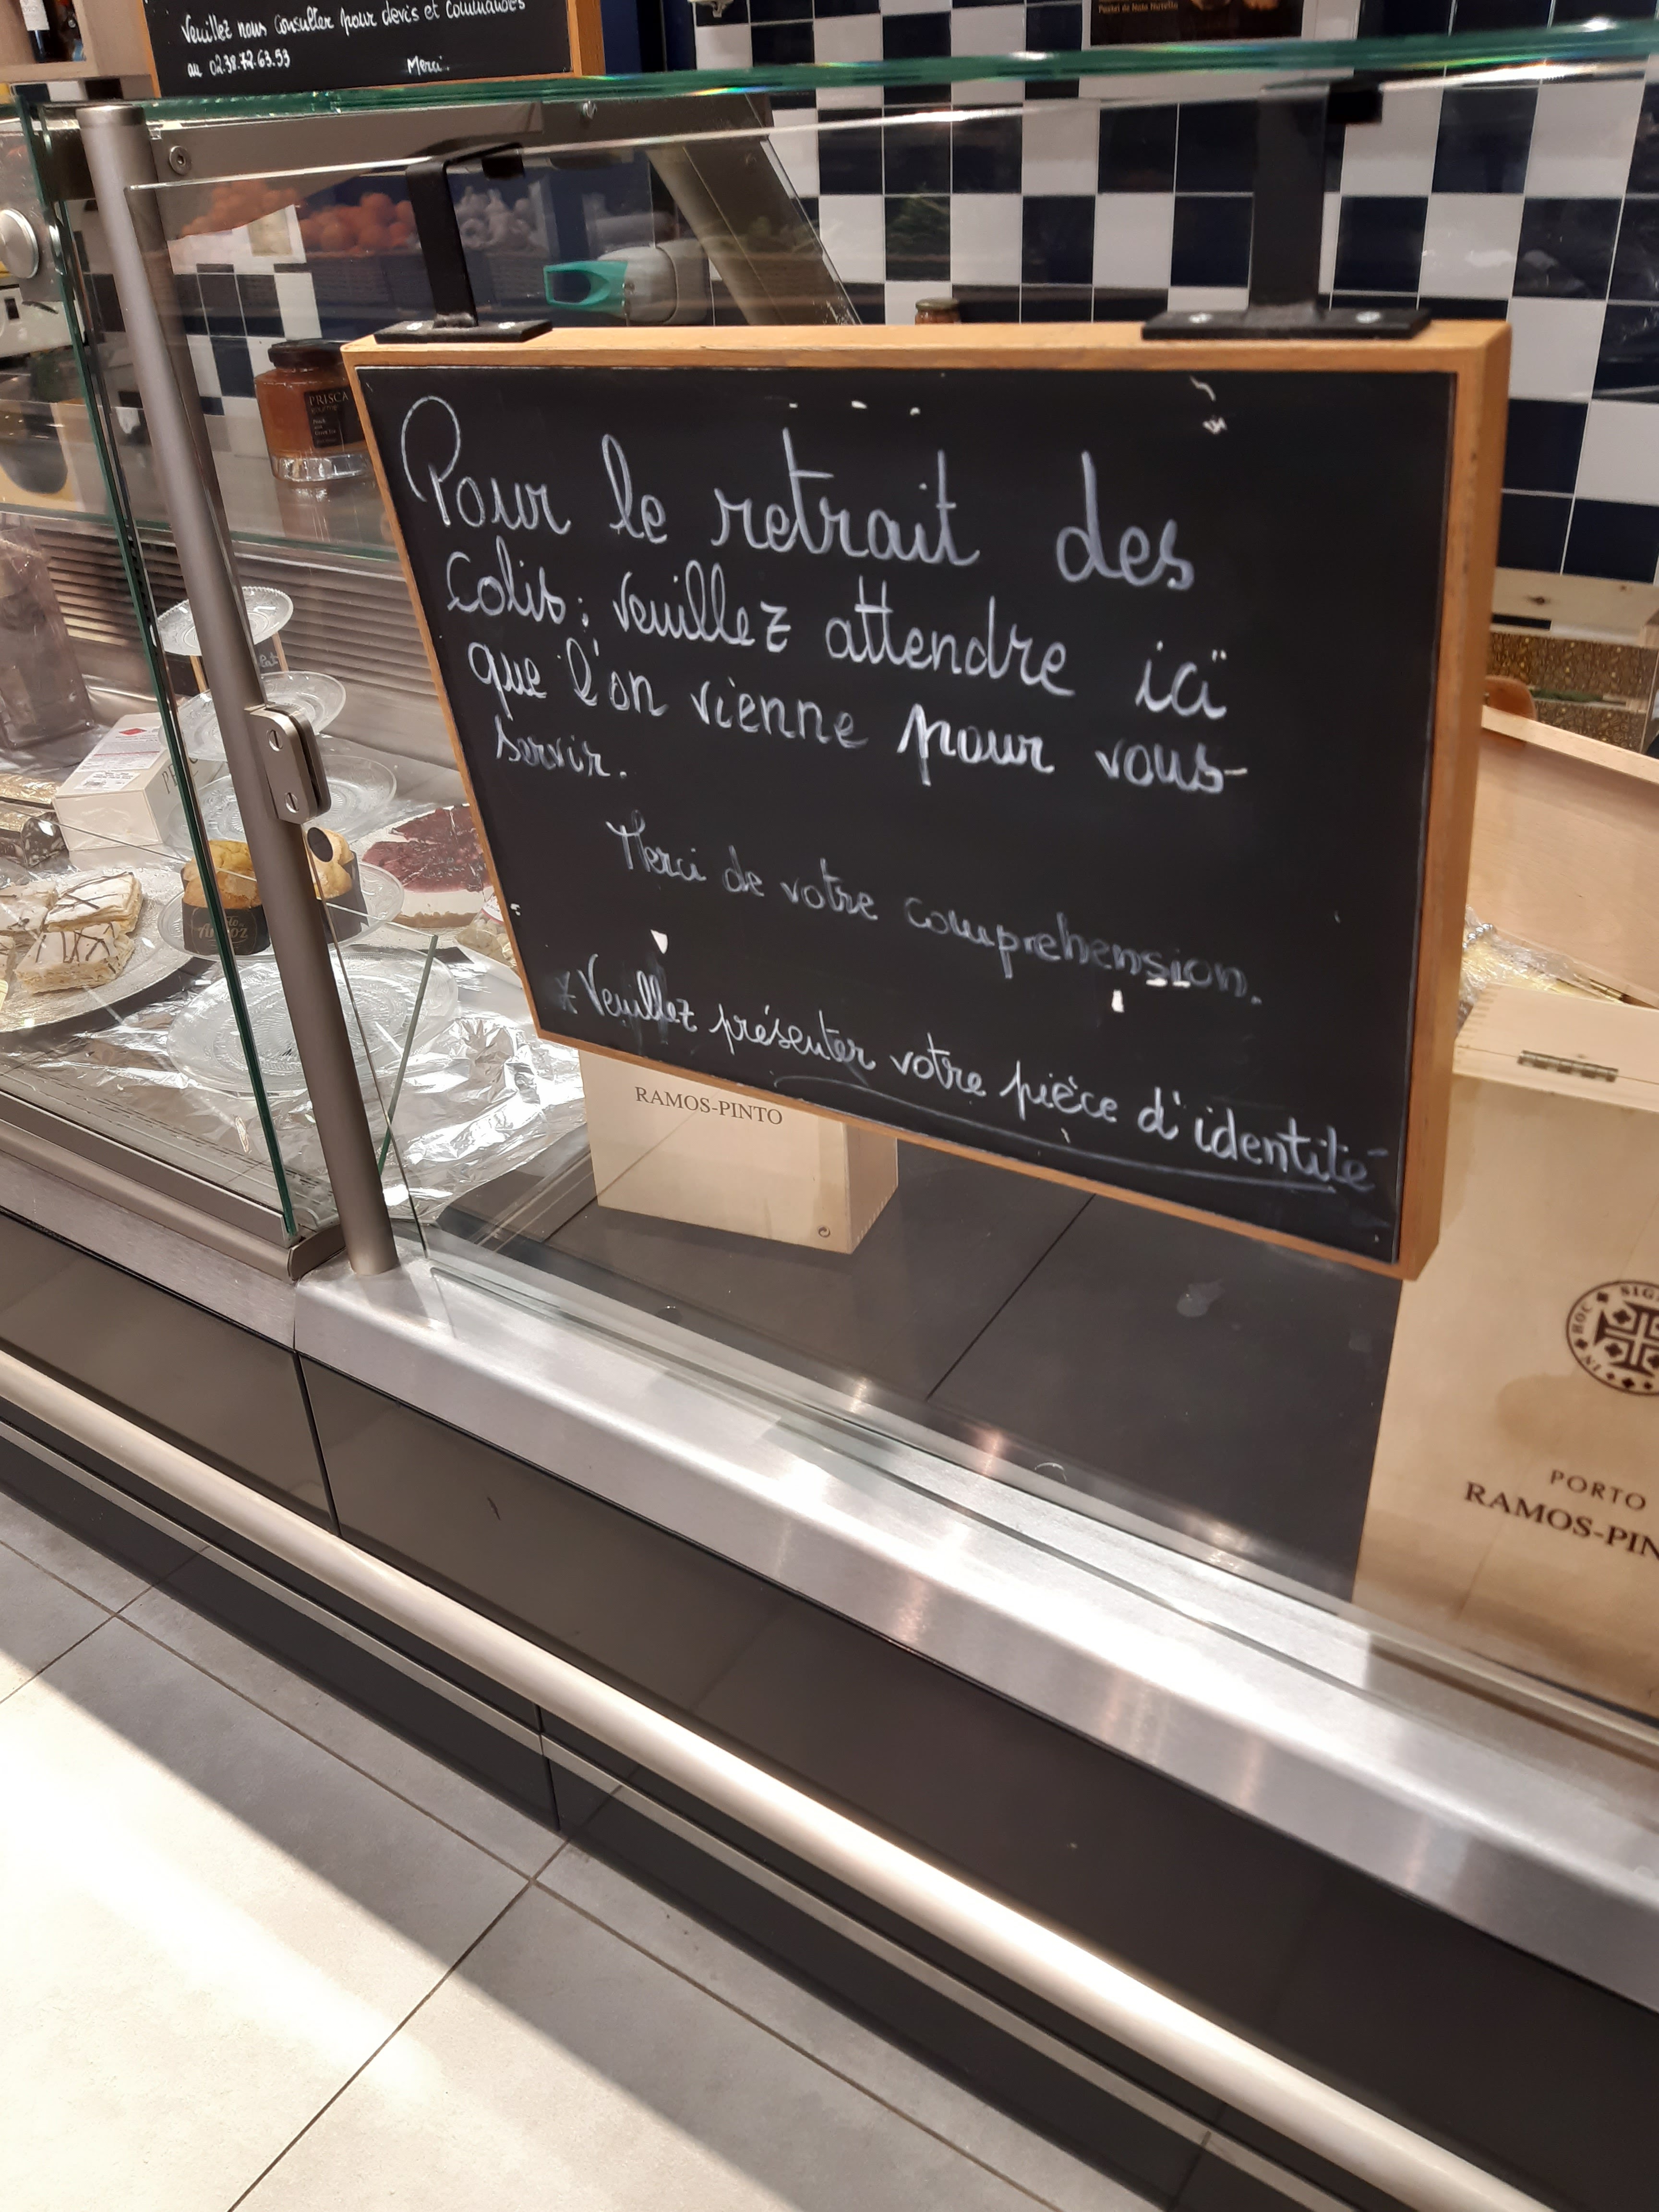 Veuillez nous consulter pour devis et commandes
au 02.38.72.63.53 Merci.
Pastel de Nata Nutella
PRISCA
Pour le retrait des
Colis: Veuillez attendre içi
que l'on vienne pour vous-
servir.
Merci de votre comprehension.
* Veuillez présenter votre pièce d'identité
RAMOS-PINTO
PORTO
RAMOS-PIN